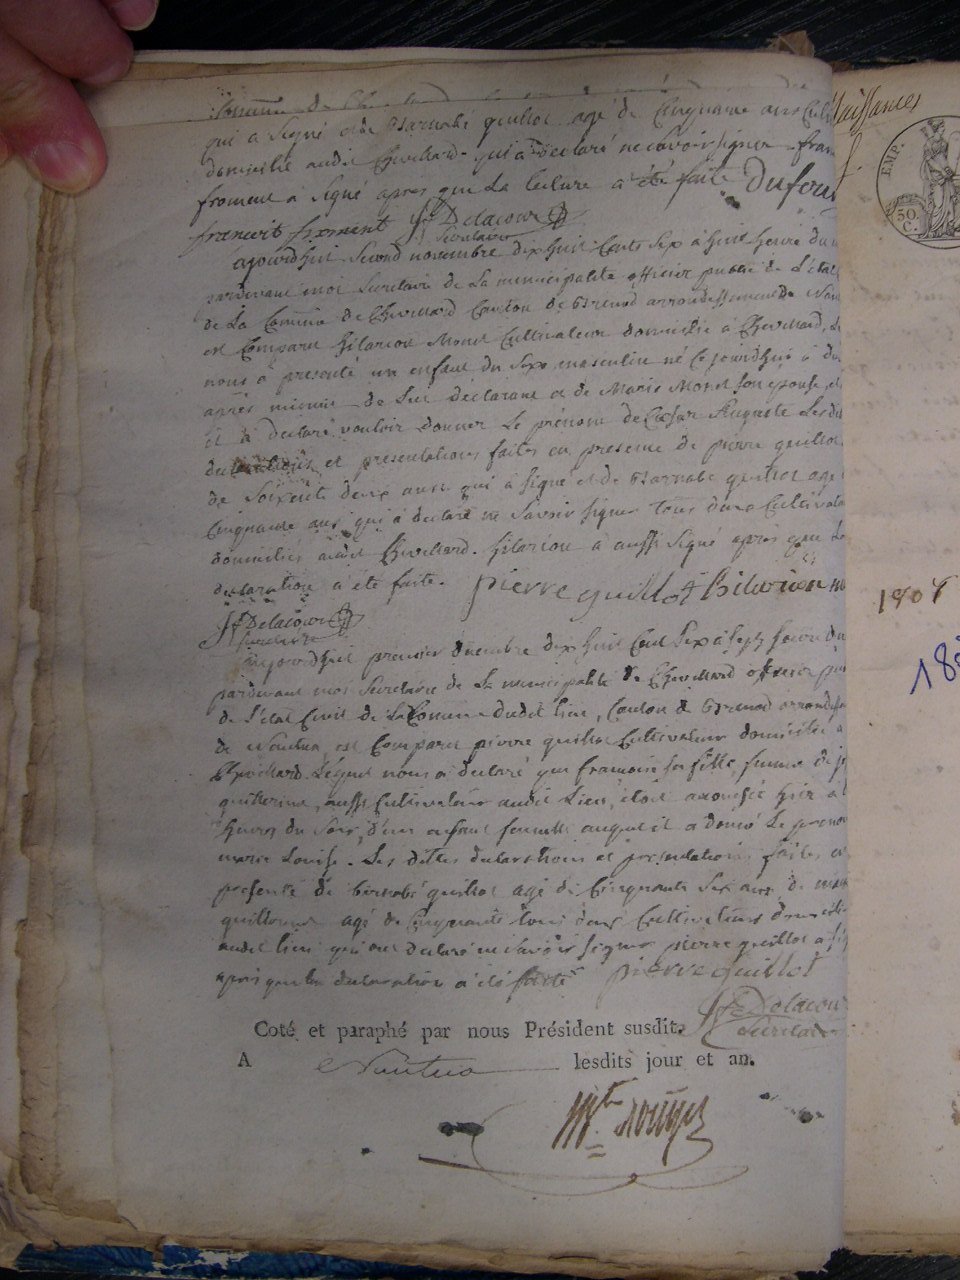 qui a signé et de Barnabé guillot agé de Cinquante ans Culti
domicilié audit Chevillard. qui a déclaré ne savoir signer. fran
froment à signé apres que la lecture a été faite Dufour
francoit froment JF Delacour
Secretaire
ajourdhuit second novembre dix huit Cents six à huit heure du m
pardevant moi Secretaire de La municipalité officier public de L'état
de La Commune de Chevillard Canton de Brenod arrondissement de Nan
est Comparu hilarion Monet Cultivateur domicilié à Chevillard, Le
nous a presenté un enfant du Sexe masculin né Ce jourdhui à d
après minuit de Lui déclarant et de Marie Monet son épouse, et
il à declaré vouloir donner Le prénom de César Auguste Les di
declarations et presentations faites en presence de pierre guillot
de Soixante deux ans qui à signé et de Barnabé guillot agé
Cinquante ans qui à declaré ne Savoir signer tous deux Cultivate
domiciliés audit Chevillard. hilarion à aussi signé apres que La
declaration a été faite. pierre guillot hilarion
JF Delacour
Secretaire
aujourdhuit premier decembre dix huit Cent Six à heure du
pardevant moi Secretaire de La municipalité de Chevillard officier pu
de L'état Civil de La Commune dudit lieu, Canton de Brenod arrondiss
de Nantua, est Comparu pierre guillot Cultivateur domicilié a
Chevillard. Lequel nous a declaré que francoise sa fille, femme de
guillerme, aussi Cultivateur audit Lieu, étoit accouchée hier à
heures du Soir, d'un enfant femelle auquel il a donné Le prenom
marie Louise. Les dittes declarations et presentations faites en
presence de bernabé guillot agé de Cinquante Six ans de
guillerme agé de Cinquante tous deux Cultivateurs domicilié
audit lieu qui ont declaré ne savoir signer pierre guillot a si
apres que la declaration a été faite pierre guillot
JF Delacour
Secretaire
Coté et paraphé par nous Président susdit.
A Nantua lesdits jour et an.
Naissances
EMP.
50.
C.
180